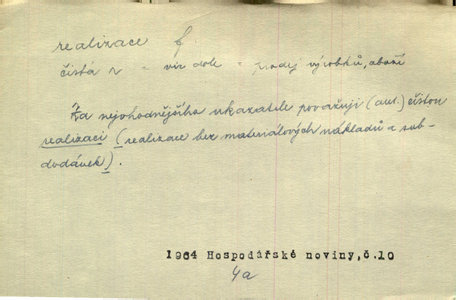 realizace f
čistá r = viz dole = prodej výrobků, zboží
Za nejvhodnějšího ukazatele považuji (aut.) čistou
realizaci (realizace bez materiálových nákladů a sub-
dodávek).
1964 Hospodářské noviny, č.10
4a